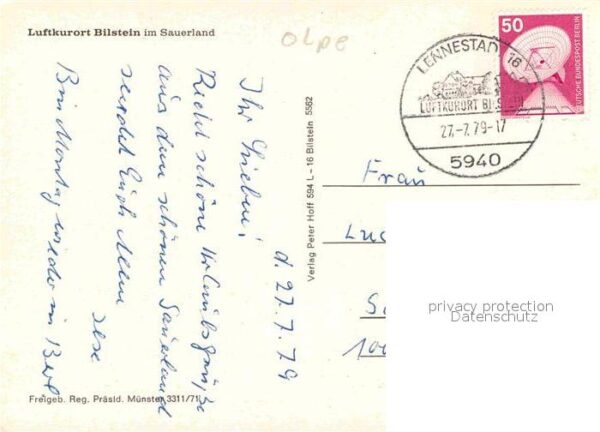 Luftkurort Bilstein im Sauerland
Olpe
50
DEUTSCHE BUNDESPOST BERLIN
LENNESTADT 16
LUFTKURORT BILSTEIN
27.-7.79-17
5940
d. 27.7.79
Ihr Lieben!
Recht schöne Urlaubsgrüße
aus dem schönen Sauerland
sendet Euch allen
Ilse
Bin Montag wieder in Berl
Verlag Peter Hoff 594 L - 16 Bilstein 5562
Frau
Luc
S
100
privacy protection
Datenschutz
Freigeb. Reg. Präsid. Münster 3311/71